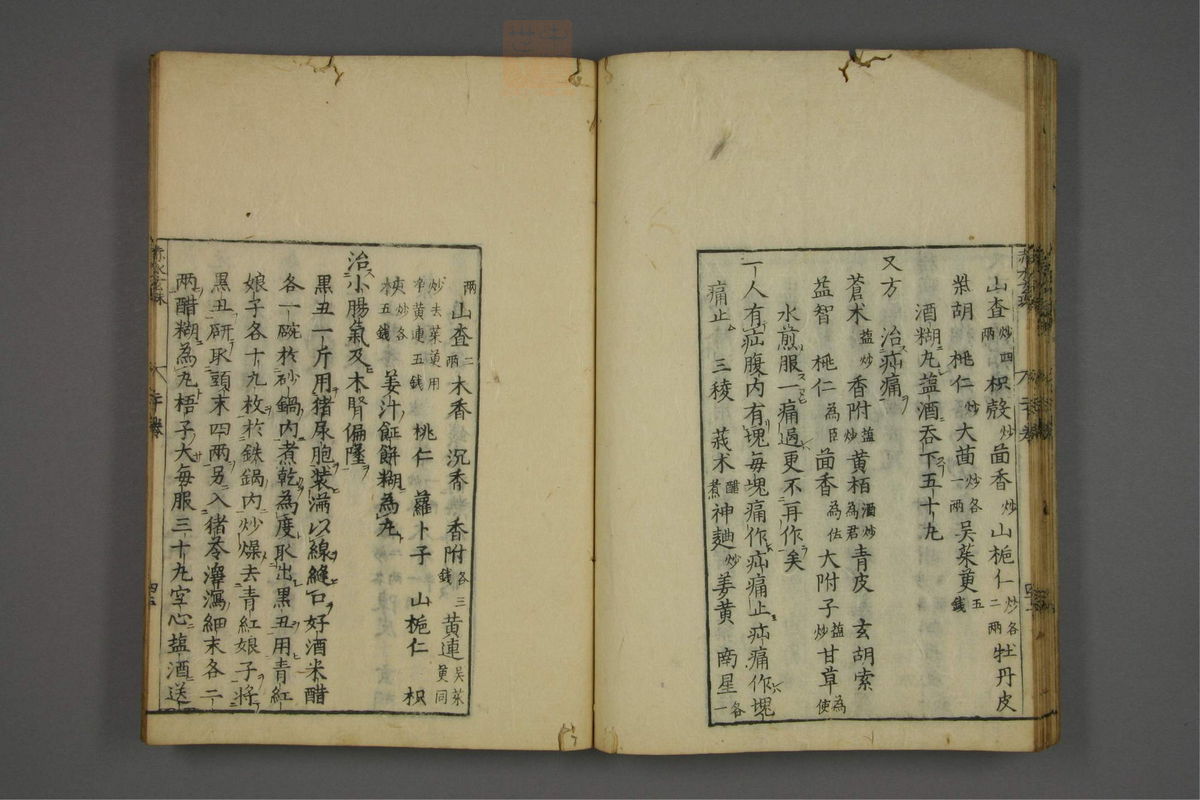 山査炒四兩枳殼炒茴香炒山梔仁炒各二兩牡丹皮
柴胡桃仁炒大茴炒各一兩吳茱萸五錢
酒糊丸鹽酒吞下五十丸
又方治疝痛
蒼术鹽炒香附鹽炒黄栢酒炒為君青皮玄胡索
益智桃仁為臣茴香為佐大附子鹽炒甘草為使
水煎服一痛過更不再作矣
一人有疝腹内有塊每塊痛作疝痛止疝痛作塊
痛止三稜莪术醋煮神麯炒姜黄南星各一
兩山査二兩木香沉香香附各三錢黄連吳茱萸同
炒去茱萸用半黄連五錢桃仁蘿卜子山梔仁枳
炒各五錢姜汁餅糊為丸
治小腸氣及木腎偏隆
黒丑一斤用猪尿胞装滿以線縫口好酒米醋
各一碗於砂鍋内煮乾為度取出黒丑用青紅
娘子各十九枚於銕鍋内炒燥去青紅娘子將
黒丑研取頭末四兩另入猪苓澤瀉細末各二
兩醋糊為丸梧子大每服三十丸空心塩酒送